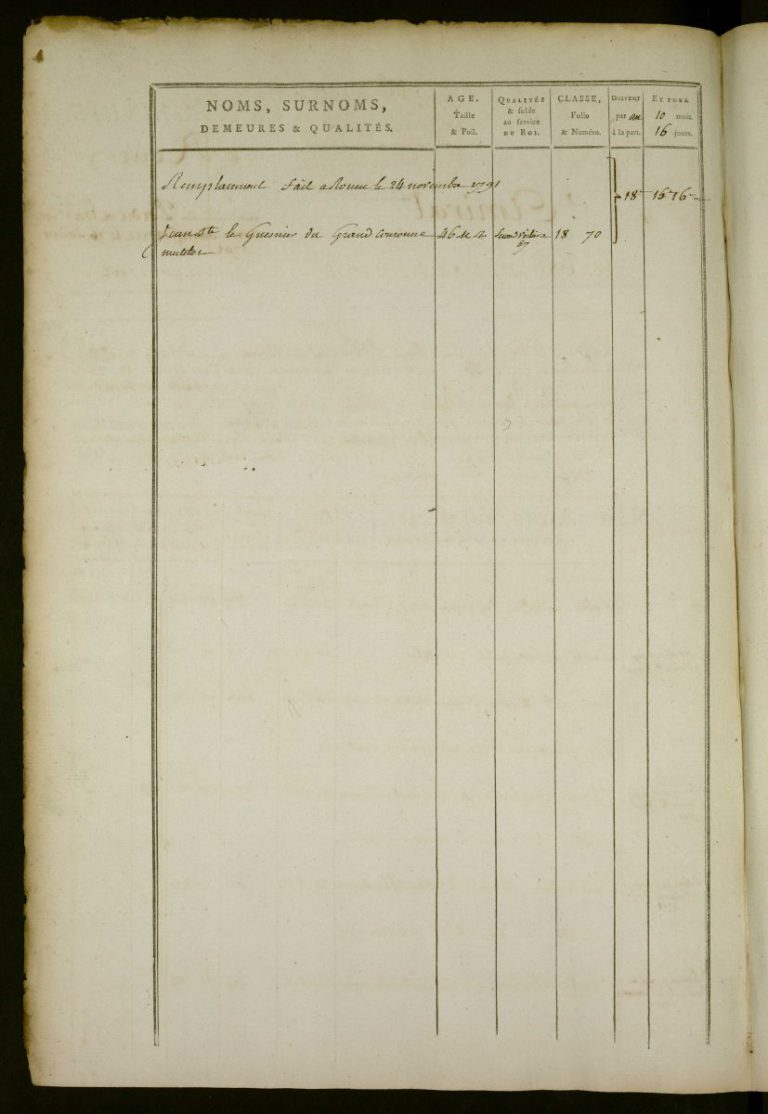 NOMS, SURNOMS,
DEMEURES & QUALITÉS.
AGE,
Taille
& Poil.
QUALITÉS
& solde
au service
DU ROI.
CLASSE,
Folio
& Numéro.
DOIVENT
par au
à la part.
ET POUR
10 mois
16 jours.
Remplacement fait a Rouen le 24 novembre 1791
18 15 16
Jean Bte le Guesnier du Grand Couronne 46 M
18 70
matelot